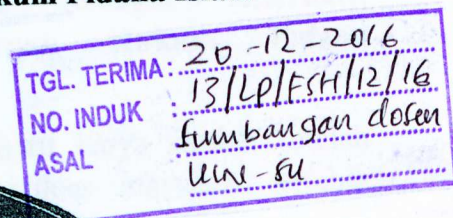 TGL. TERIMA : 20-12-2016
NO. INDUK : 13/LP/FSH/12/16
ASAL sumbangan dosen
UIN-SU